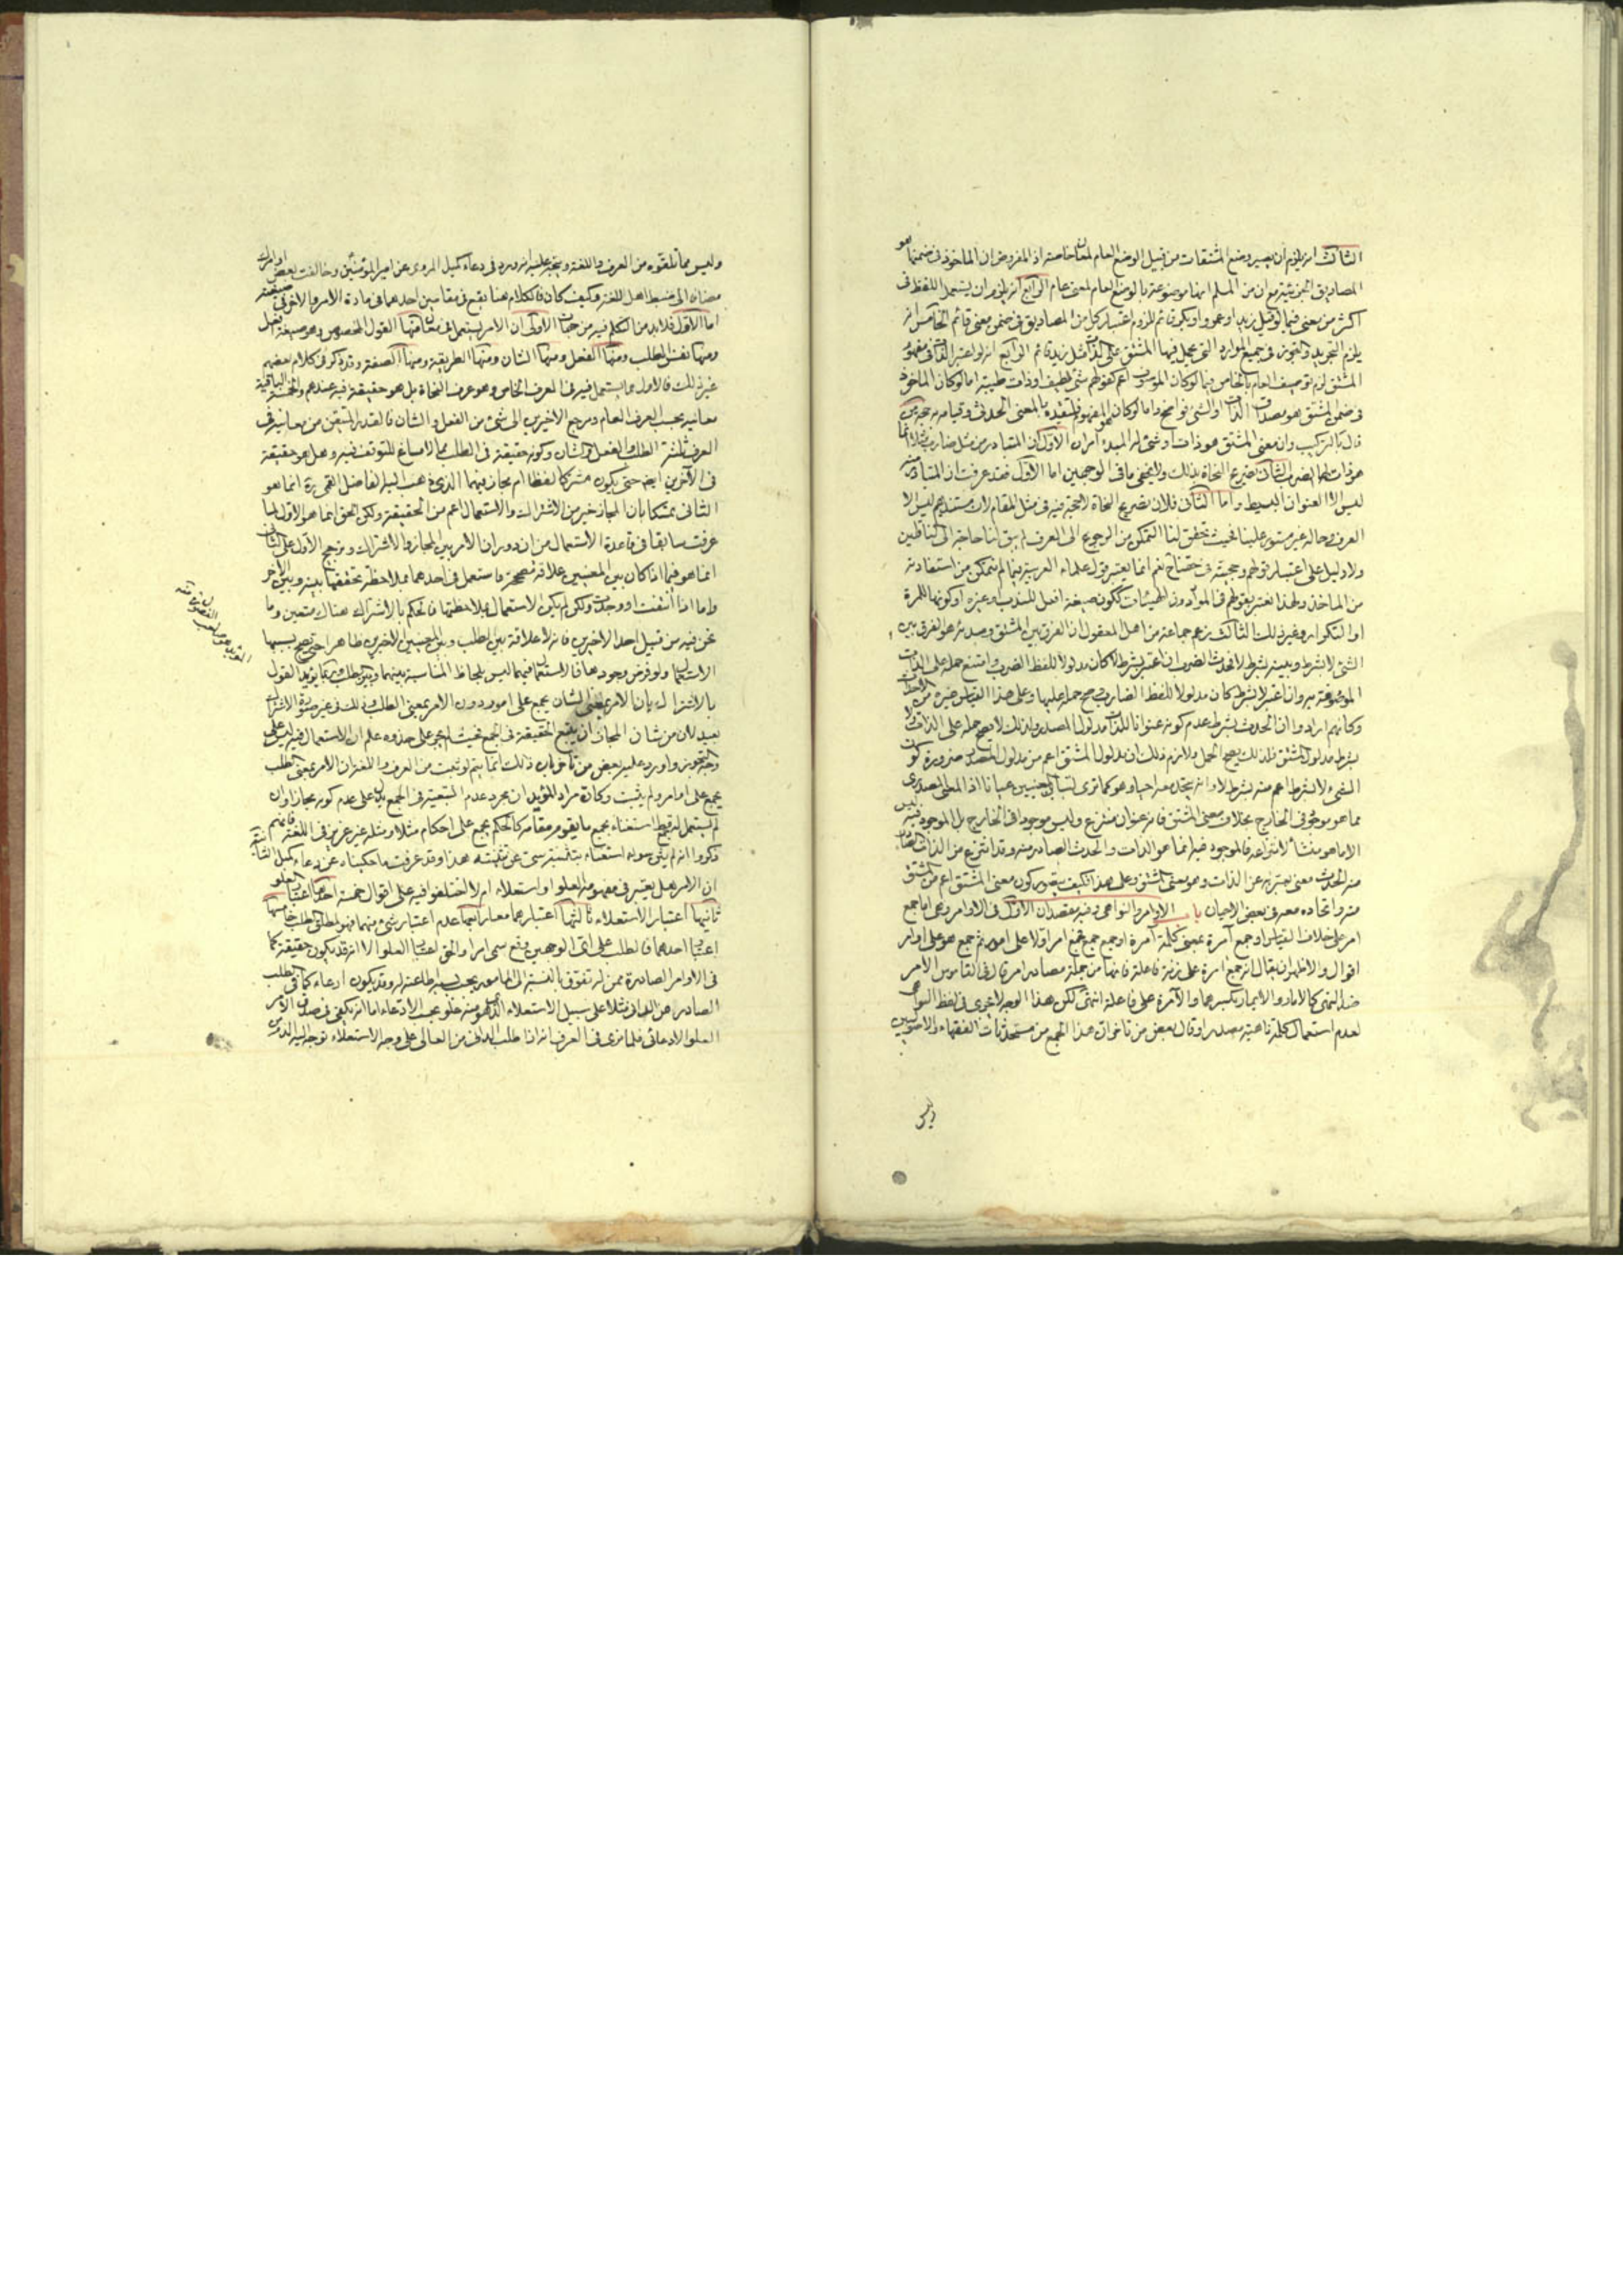 الثالث انه يلزم ان يصير وضع المشتقات من قبيل الوضع العام لمعان خاصة اذ المفروض ان الماخوذ في ضمنها هو
المصاديق الجزئية مع ان من المسلم انها موضوعة بالوضع العام لمعنى عام الرابع انه يلزم ان يستعمل اللفظ في
اكثر من معنى فيما لو قيل زيد او عمرو او بكر قائم للزوم اعتبار كل من المصاديق في ضمن معنى قائم الخامس انه
يلزم التجريد والتجوز في جميع الموارد التي يحمل فيها المشتق على الذات مثل زيد قائم الرابع انه لو اعتبر الذات في مفهوم
المشتق لزم توصيف العام بالخاص فيما لو كان الموصوف اعم كقولهم شئ لطيف او ذات طيبة اما لو كان الماخوذ
في ضمن المشتق هو مصداق الذات او الشئ فواضح واما لو كان المفهوم فلتقيده بالمعنى الحدثي وقيامه به حجة من
قال بالتركيب وان معنى المشتق هو ذات او شئ له المبدء امران الاول ان المتبادر من مثل ضارب انما
هو ذات لها الضرب الثاني تصريح النحاة بذلك ولا يخفى ما في الوجهين اما الاول فقد عرفت ان المتبادر منه
ليس الا العنوان البسيط واما الثاني فلان تصريح النحاة لا حجية فيه في مثل المقام لان مستندهم ليس الا
العرف وحاله غير مستور علينا فحيث تحقق لنا التمكن من الرجوع الى العرف لم يبق لنا حاجة الى الناقلين
ولا دليل على اعتبار قولهم وحجيته في نعم انما يعتبر قول علماء العربية فيما لم نتمكن من استفادته
من الماخذ ولهذا نعتبر بقولهم في المواد دون الهيئات ككون صيغة افعل للندب او غيره او كونها للمرة
او التكرار وغير ذلك الثالث زعم جماعة من اهل المعقول ان الفرق بين المشتق ومبدئه هو الفرق بين
الشئ لا بشرط وبينه بشرط لا فحدث الضرب ان اعتبر بشرط لا كان مدلولا للفظ الضرب وامتنع حمله على الذات
الموصوفة به وان اعتبر لا بشرط كان مدلولا للفظ الضارب وصح حمله عليها وعلى هذا القياس غيره من الالفاظ
وكانهم ارادوا ان الحدث بشرط عدم كونه عنوانا للذات مدلول المصدر ولذلك لا يصح حمله على الذات ولا
بشرط مدلول المشتق ولذلك يصح الحمل ولازم ذلك ان مدلول المشتق اعم من مدلول المصدر ضرورة كون
الشئ لا بشرط اعم منه بشرط لا وانه يتحد معه احيانا وهو كما ترى لتباين الجنبين عيانا اذ المعنى المصدري
مما هو موجود في الخارج بخلاف معنى المشتق فانه عنوان منتزع وليس موجودا في الخارج بل الموجود فيه ليس
الا ما هو منشأ لانتزاعه فالموجود فيه انما هو الذات والحدث الصادر منه وقد انتزع من الذات
منه الحدث معنى يعبر به عن الذات وهو معنى المشتق وعلى هذا فكيف يتصور كون معنى المشتق اعم من المشتق
منه واتحاده معه في بعض الاحيان باب الاوامر والنواهي وفيه مقصدان الاول في الاوامر وهي اما جمع
امر على خلاف القياس او جمع آمرة بمعنى كلمة آمرة او جمع جمع فجمع امر اولا على امور ثم جمع هو على اوامر
اقوال والاظهر ان يقال انه جمع امرة على زنة فاعلة فانها من جملة مصادر امر قال في القاموس الامر
ضد النهي كالامار والايمار بكسرهما والآمرة على فاعلة انتهى لكن هذا الوجه لا يجري في لفظ النواهي
لعدم استعمال كلمة ناهية مصدرا وقال بعض من تاخر ان هذا الجمع من مستحدثات الفقهاء والاصوليين
وليس
وليس مما تلقوه من العرف واللغة ويتجه عليه انه ورد في دعاء كميل المروي عن امير المؤمنين وخالفت بعض اوامرك
مضافا الى ضبط اهل اللغة وكيف كان فالكلام هنا يقع في مقامين احدهما في مادة الامر والاخر في صيغته
اما الاول فلا بد من التكلم فيه من جهات الاولى ان الامر يستعمل في معان منها القول المخصوص وهو صيغة افعل
ومنها نفس الطلب ومنها الفعل ومنها الشان ومنها الطريقة ومنها الصفة وقد ذكر في كلام بعضهم
غير ذلك فالاول مما يستعمل فيه في العرف الخاص وهو عرف النحاة بل هو حقيقة فيه عندهم والخمسة الباقية
معانيه بحسب العرف العام ومرجع الاخيرين الى شئ من الفعل والشان فالقدر المتيقن من معانيه في
العرف ثلثة الطلب والفعل والشان وكونه حقيقة في الطلب مما لا مساغ للتوقف فيه وهل هو حقيقة
في الآخرين ايضا حتى يكون مشتركا لفظا ام مجاز فيهما الذي ذهب اليه الفاضل القمي ره انما هو
الثاني متمسكا بان المجاز خير من الاشتراك والاستعمال اعم من الحقيقة ولكن الحق انما هو الاول لما
عرفت سابقا في قاعدة الاستعمال من ان دوران الامر بين المجاز والاشتراك وترجيح الاول على الثاني
انما هو فيما اذا كان بين المعنيين علاقة مصححة فاستعمل في احدهما بملاحظة تحققها بينه وبين الآخر
واما اذا انتفت او وجدت ولكن لم يكن الاستعمال بملاحظتها فالحكم بالاشتراك هناك متعين وما
نحن فيه من قبيل احد الاخيرين فانه لا علاقة بين الطلب وبين المعنيين الاخيرين ظاهرا حتى يصح بسببها
الاستعمال ولو فرض وجودها فالاستعمال فيهما ليس بلحاظ المناسبة بينهما وبين الطلب وربما يؤيد القول
بالاشتراك بان الامر بمعنى الشان يجمع على امور دون الامر بمعنى الطلب وذلك في غير صورة الاشتراك
بعيد لان من شان المجاز ان يتبع الحقيقة في الجمع فحيث لم يجر على حذوه علم ان الاستعمال فيه ليس على
وجه التجوز واورد عليه بعض من تاخر بان ذلك انما يتم لو ثبت من العرف واللغة ان الامر بمعنى الطلب
يجمع على اوامر ولم يثبت وكان مراد المؤيد ان مجرد عدم التبعية في الجمع يدل على عدم كونه مجازا وان
لم يستعمل له جمع استغناء بجمع ما يقوم مقامه كالحكم يجمع على احكام مثلا ومثله غير عزيز في اللغة فانهم
ذكروا انه لم يثن سواء استغناء بتثنية سي عن تثنيته هذا وقد عرفت ما حكيناه عن دعاء كميل الثانية
ان الامر هل يعتبر في مفهومه العلو او استعلاء ام لا اختلفوا فيه على اقوال خمسة احدها اعتبار العلو
ثانيها اعتبار الاستعلاء ثالثها اعتبارهما معا رابعها عدم اعتبار شئ منهما فهو لمطلق الطلب خامسها
اعتبار احدهما فالطلب على اي الوجهين وقع سمي امرا والحق اعتبار العلو الا انه قد يكون حقيقة كما
في الاوامر الصادرة ممن له تفوق بالنسبة الى المامور بحيث يجب اطاعته له وقد يكون ادعاء كما في الطلب
الصادر من الجاني مثلا على سبيل الاستعلاء الظاهر منه علو بحسب الادعاء اما انه يكفي في صدق الامر
العلو الادعائي فلما نرى في العرف انه اذا طلب الداني من العالي على وجه الاستعلاء توجه اليه الذم